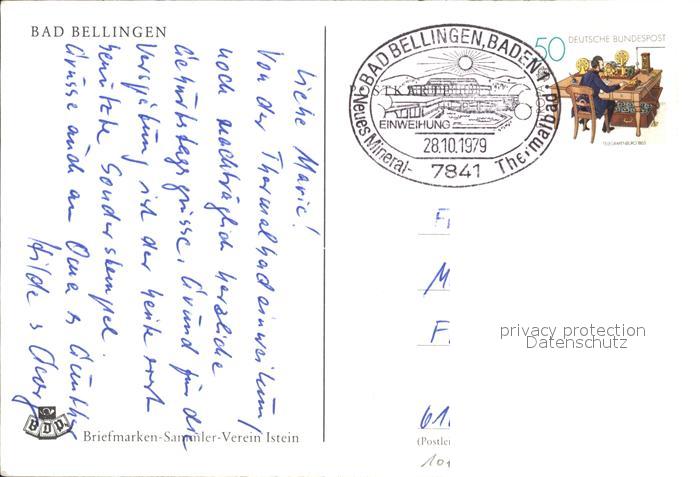 BAD BELLINGEN
Liebe Marie!
Von der Thermalbadeinweihung
noch nachträglich herzliche
Geburtstagsgrüsse. Grund für die
Verspätung ist der heute erst
benützte Sonderstempel.
Grüsse auch an Oma & Günther
Hilde & Georg
BDPh
Briefmarken-Sammler-Verein Istein
BAD BELLINGEN, BADEN
POSTKARTE
EINWEIHUNG
28.10.1979
Neues Mineral-
7841
Thermalbad
50 DEUTSCHE BUNDESPOST
TELEGRAFENBÜRO 1863
F
M
F
privacy protection
Datenschutz
61
(Postle